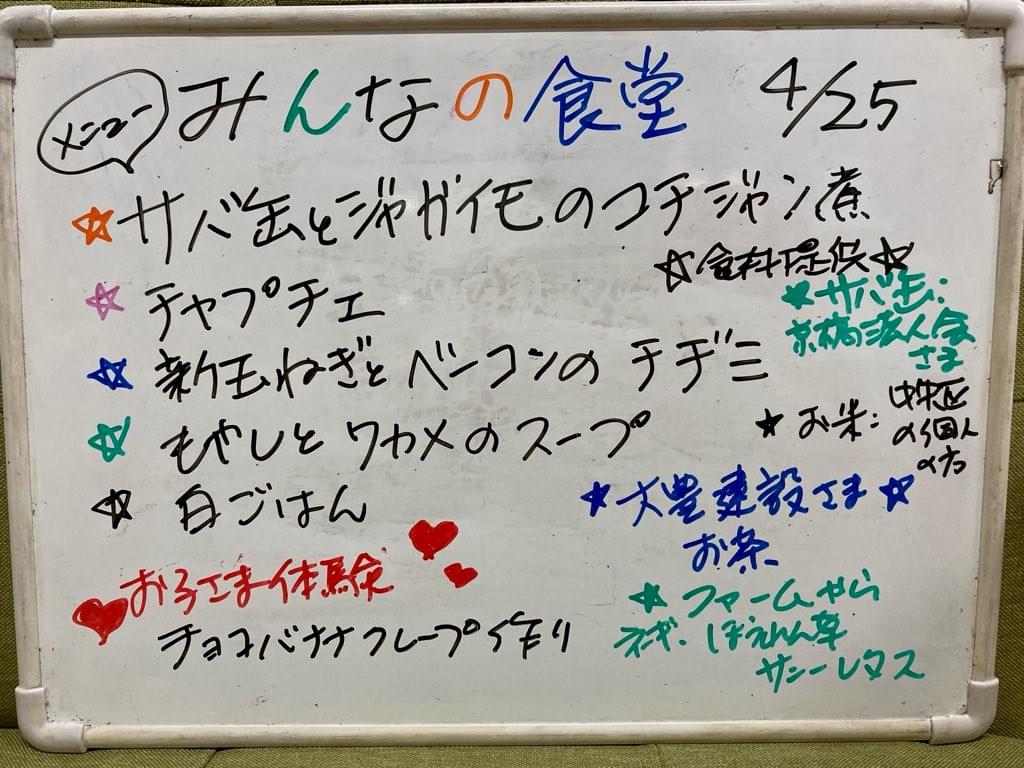 メニュー
みんなの食堂 4/25
☆サバ缶とジャガイモのコチジャン煮
☆チャプチェ
☆新玉ねぎとベーコンのチヂミ
☆もやしとワカメのスープ
☆白ごはん
お子さま体験
チョコバナナクレープ作り
☆食料提供☆
★サバ缶:
京橋法人会
さま
★お米: 中央区
の個人
の方
★大豊建設さま★
お茶
★ファームやら
ネギ、ほうれん草
サニーレタス